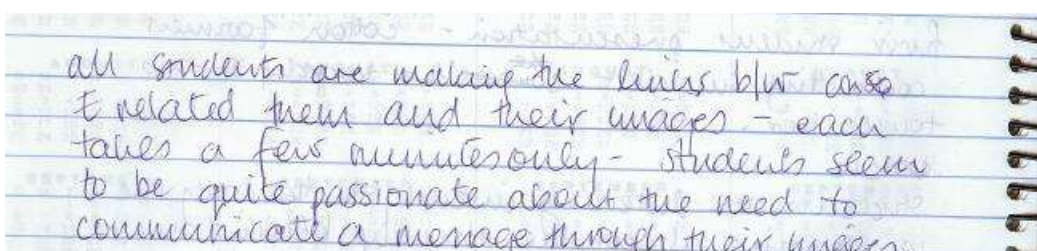 all students are making the links b/w
& related them and their images - each
takes a few minutes only - students seem
to be quite passionate about the need to
communicate a message through their images